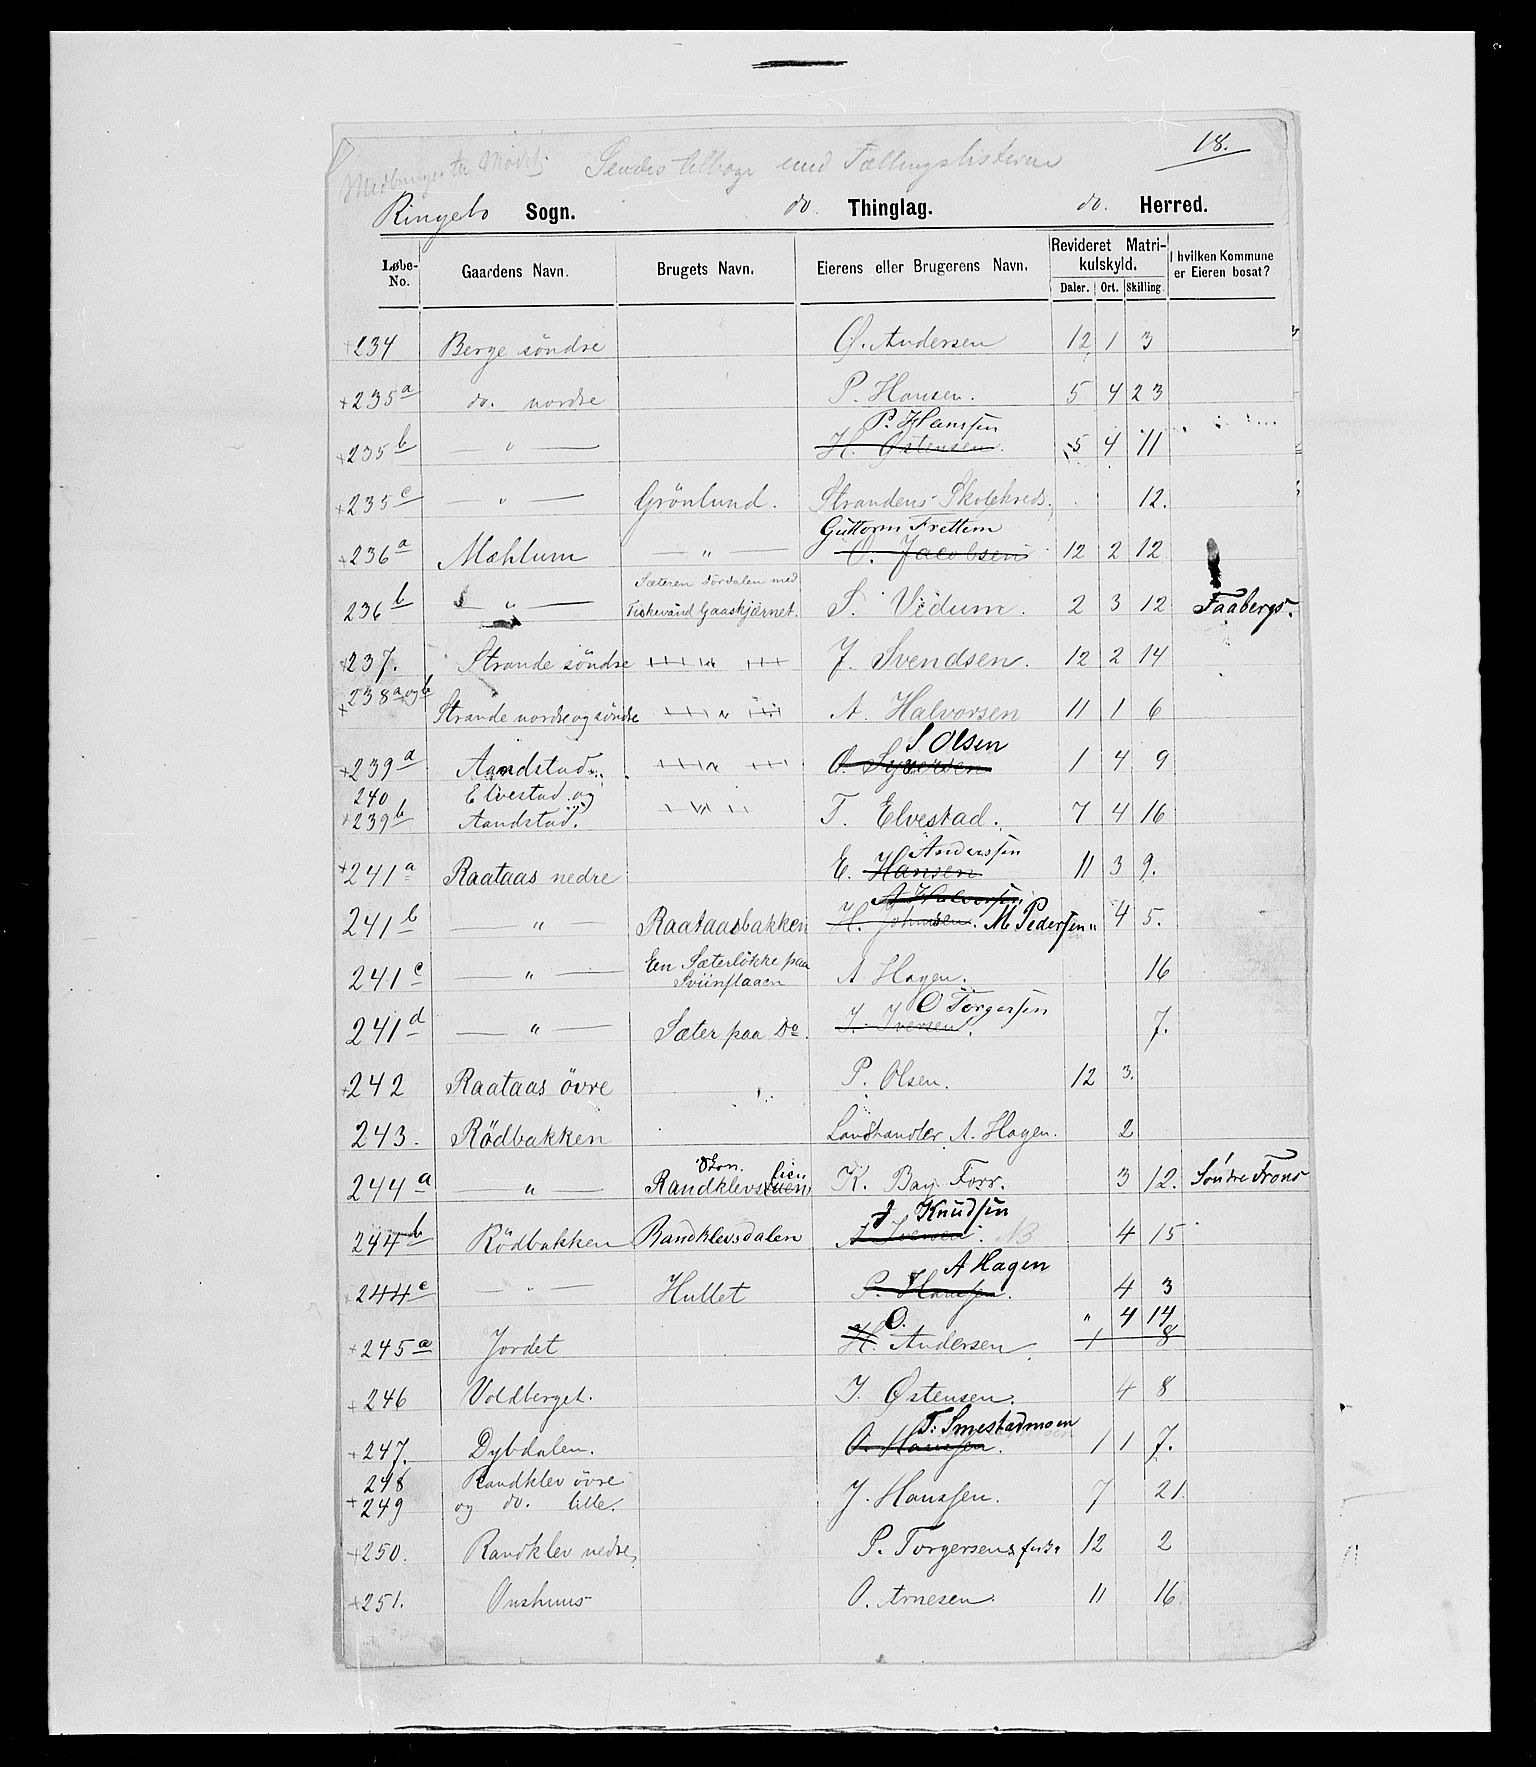 18.
Medbringes til Mødet. Sendes tilbage med Tællingslisterne
Ringebo Sogn. do. Thinglag. do. Herred.
Løbe-No. Gaardens Navn. Brugets Navn. Eierens eller Brugerens Navn. Revideret Matrikulskyld. Daler. Ort. Skilling. I hvilken Kommune er Eieren bosat?
+234 Berge söndre Ø. Andersen 12 1 3
+235a do. nordre P. Hansen. 5 4 23
P. Hanssen
+235b — " — H. Østensen. 5 4 11
+235c — " — Grönlund. Strandens Skolekreds. 12.
Guttorm Frettem
+236a Mæhlum — " — O. Jacobsen 12 2 12
Sæteren Dördalen med
236b — " — Fiskevand Gaaskjærnet. S. Vidum. 2 3 12 Faabergs.
+237. Strande söndre " J. Svendsen. 12 2 14
+238a og b Strande nordre og söndre " A. Halvorsen 11 1 6
S Olsen
+239a Aandstad. " O. Syversen 1 4 9
240 Elvestad og
+239b Aandstad. " T. Elvestad. 7 4 16
Anderssen
+241a Raataas nedre E. Hansen 11 3 9.
A Halvorsen
241b — " — Raataasbakken H. Johnsen. M Pedersen " 4 5.
Een Sæterlökke paa
241c — " — Sviinflaaen A. Hagen. 16
O Torgersen
241d — " — Sæter paa Do. I. Iversen. 7.
+242 Raataas övre P. Olsen. 12 3.
243. Rödbakken Landhandler A. Hagen. 2
lien
244a — " — Randklevs K. Bay Forr. 3 12. Söndre Frons
J Knudsen
244b Rödbakken Randklevsdalen A Iversen. NB 4 15
A Hagen
244c — " — Hullet P. Hansen. 4 3
O. " 4 14
+245a Jordet H. Andersen 1 8
+246 Voldberget. J. Østensen. 4 8
T. Smestadmoen
+247. Dybdalen. O. Hansen. 1 1 7.
248 Randklev övre
+249 og do. lille. J. Hanssen. 7 21
+250. Randklev nedre P. Torgersens 12 2
+251. Onshuus O. Arnesen. 11 16